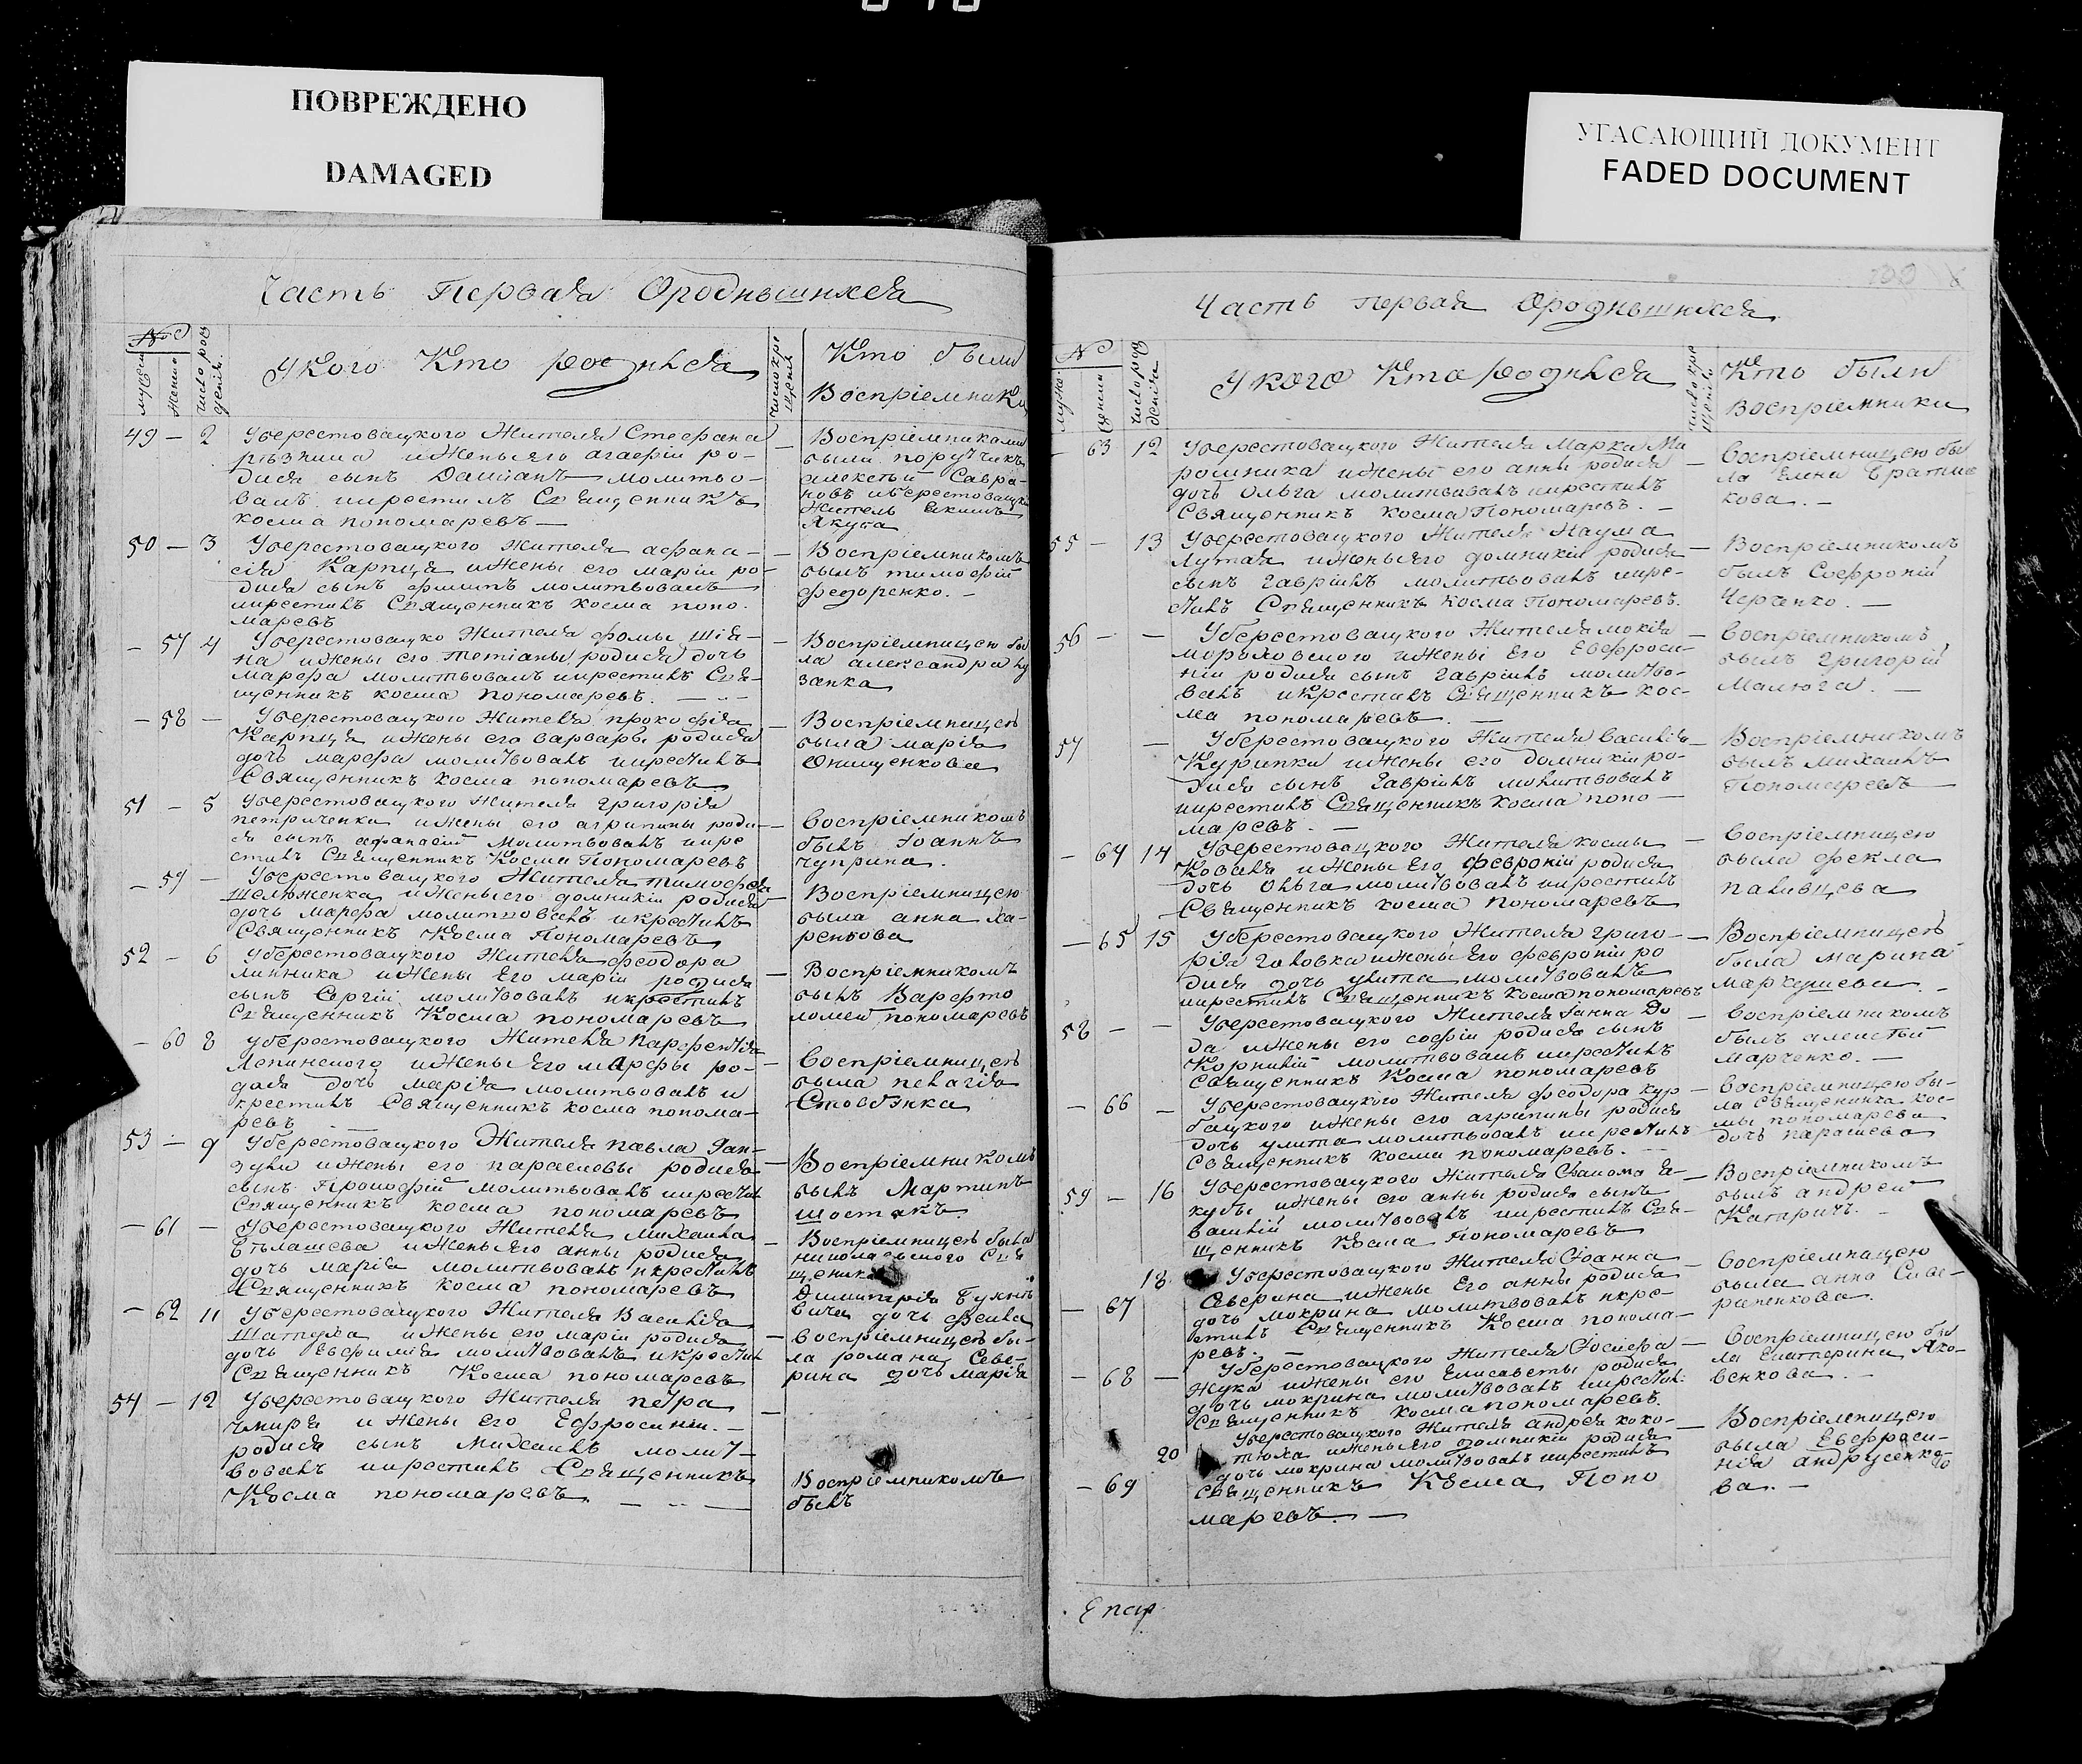 ПОВРЕЖДЕНО
DAMAGED
УГАСАЮЩИЙ ДОКУМЕНТ
FADED DOCUMENT
Часть Первая Ородившихся
№
мужеска
женска
число рож
денія
Укого Кто родился
число кре
щенія
Кто были
Воспріемники
49 — 2 Уберестовацкого Жителя Стефана
иженыего агафіи ро-
дися сынъ Даміанъ молитво-
валъ икрестилъ Священникъ
косма пономаревъ —
— Воспріемниками
были поручикъ
алексѣй Савра-
новъ иберестовацкій
житель Екимъ
Якуба
50 — 3 Уберестовацкого жителя афана-
сія Карпца ижены его маріи ро-
дися сынъ филипъ молитвовалъ
икрестилъ Священникъ косма поно-
маревъ
— Воспріемникомъ
былъ тимофій
федоренко. —
— 57 4 Уберестовацко Жителя фомы
ижены его теміаны родися дочь
марфа молитвовалъ икрестилъ Свя-
щенникъ косма пономаревъ. —
— Воспріемницею бы
ла александра
занка
— 58 — Уберестовацкого Жителя прокофія
Карпця ижены его варвары родися
дочь марфа молитвовалъ икрестилъ
Священникъ косма пономаревъ
— Воспріемницею
была марія
Онищенкова
51 — 5 Уберестовацкого жителя григорія
петриченка ижены его агрипины роди-
ся сынъ афанасій молитвовалъ икре
стилъ Священникъ Косма Пономаревъ
— Воспріемникомъ
былъ Іоаннъ
чуприна.
— 59 — Уберестовацкого Жителя тимофея
шелюженка иженыего домникіи родися
дочь марфа молитвовалъ икрестилъ
Священникъ Косма Пономаревъ
— Воспріемницею
была анна ха-
ренкова
52 — 6 Уберестовацкого Жителя феодора
линника ижены Его маріи родися
сынъ Сергій молитвовалъ икрестилъ
Священникъ Косма пономаревъ
— Воспріемникомъ
былъ Варфто
ломей пономаревъ
— 60 8 Уберестовацкого Жителя парфентія
Лепинского ижены Его марфы ро-
дися дочь марія молитвовалъ и
крестилъ Священникъ косма понома-
ревъ
— Воспріемницею
была пелагія
Стовбянка
53 — 9 Уберестовацкого Жителя павла Ган-
ижены его парасковы родися
сынъ Прокофій молитвовалъ икрестил
Священникъ косма пономаревъ
— Воспріемникомъ
былъ Мартинъ
шостакъ
— 61 — Уберестовацкого Жителя михаила
Бѣлашева иженыего анны родися
дочь марія молитвовалъ икрестилъ
Священникъ косма пономаревъ
— Воспріемницею была
николаевского Свя
щеника
Димитрія
вича дочь
— 62 11 Уберестовацкого Жителя Василія
Шаптуха ижены его маріи родися
дочь Евфимія молитвовалъ икрестил
Священникъ Косма пономаревъ
— воспріемницею бы-
ла романа Севе-
рина дочь марія
54 — 12 Уберестовацкого Жителя петра
чмиря и жены его Ефросиніи. —
родися сынъ михаилъ молит-
вовалъ икрестилъ Священникъ
Косма пономаревъ —
Воспріемникомъ
былъ
Часть первая Ородившихся
№
мужес.
женска
число рож
денія
Укого Кто родился
число кре
щенія
Кто были
воспріемники
— 63 12 Уберестовацкого Жителя Марка Ми
рошника ижены его анны родися
дочь ольга молитвовалъ икрестилъ
Священникъ косма Пономаревъ. —
— Воспріемницею бы
ла Елена Братие
кова. —
55 — 13 Уберестовацкого Жителя Наума
Лутая иженыего домникіи родися
сынъ гавріилъ молитвовалъ икре-
стилъ Священникъ Косма Пономаревъ.
— Воспріемникомъ
былъ Софроній
Черченко. —
56 — — Уберестовацкого Жителя мокія
мороховского ижены его Евфроси-
ніи родися сынъ гавріилъ молитво-
валъ икрестилъ Священникъ кос-
ма пономаревъ. —
— воспріемникомъ
былъ григорій
Малюга. —
57 — Уберестовацкого Жителя василія
Курипки ижены его домникіи ро-
дися сынъ гавріилъ молитвовалъ
икрестилъ Священникъ косма поно-
маревъ. —
— Воспріемникомъ
былъ михаилъ
Пономаревъ
— 64 14 Уберестовацкого Жителя космы
Коваля ижены Его февроніи родися
дочь ольга молитвовалъ икрестилъ
Священникъ косма пономаревъ
— Воспріемницею
была фекла
паливцева
— 65 15 Уберестовацкого Жителя григо-
рія головка ижены Его февроніи ро
дися дочь улита молитвовалъ
икрестилъ Священникъ косма пономаревъ
— Воспріемницею
была марина
маркушева. —
58 — — Уберестовацкого Жителя Ганна До
да ижены его софіи родися сынъ
Корнилій молитвовалъ икрестилъ
Священникъ Косма пономаревъ
— воспріемникомъ
былъ алексѣй
марченко. —
— 66 — Уберестовацкого Жителя феодора кур-
бацкого ижены его агрипины родися
дочь улита молитвовалъ икрестилъ
Священникъ косма пономаревъ.
— воспріемницею бы-
ла Священика кос-
мы пономарева
дочь парасева
59 — 16 Уберестовацкого Жителя Фанома Я-
кубы ижены его анны родися сынъ
василій молитвовалъ икрестилъ Свя-
щенникъ Косма Пономаревъ
— Воспріемникомъ
былъ андрей
Катричъ. —
— 67 18 Уберестовацкого Жителя Іоанна
Северина ижены Его анны родися
дочь мокрина молитвовалъ икре-
стилъ Священникъ Косма понома-
ревъ. —
— воспріемницею
была анна Севе-
риненкова.
— 68 — Уберестовацкого Жителя Іосифа
Жука ижены его Елисаветы родися
дочь мокрина молитвовалъ икрестил.
Священникъ косма пономаревъ.
— Воспріемницею бы
ла Екатерина Яко-
венкова. —
— 69 20 Уберестовацкого Жителя андрея коко-
тюха иженыего домникіи родися
дочь мокрина молитвовалъ икрестилъ
Священникъ Косма Поно
маревъ. —
— Воспріемницею
была Евфроси-
нія андрусенко
ва. —